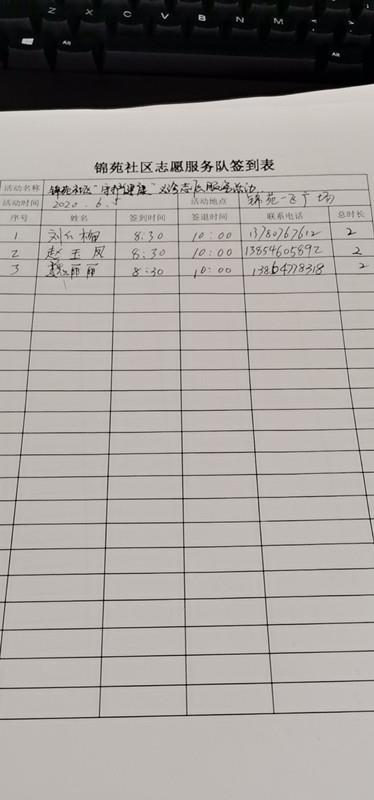 Z X C V B N M
Alt
Alt
锦苑社区志愿服务队签到表
活动名称 锦苑社区"守护健康"义诊志愿服务活动
活动时间 2020.6.5 活动地点 锦苑一区广场
序号 姓名 签到时间 签退时间 联系电话 总时长
1 刘 8:30 10:00 13780767612 2
2 赵玉凤 8:30 10:00 13854605892 2
3 魏丽丽 8:30 10:00 13864778318 2